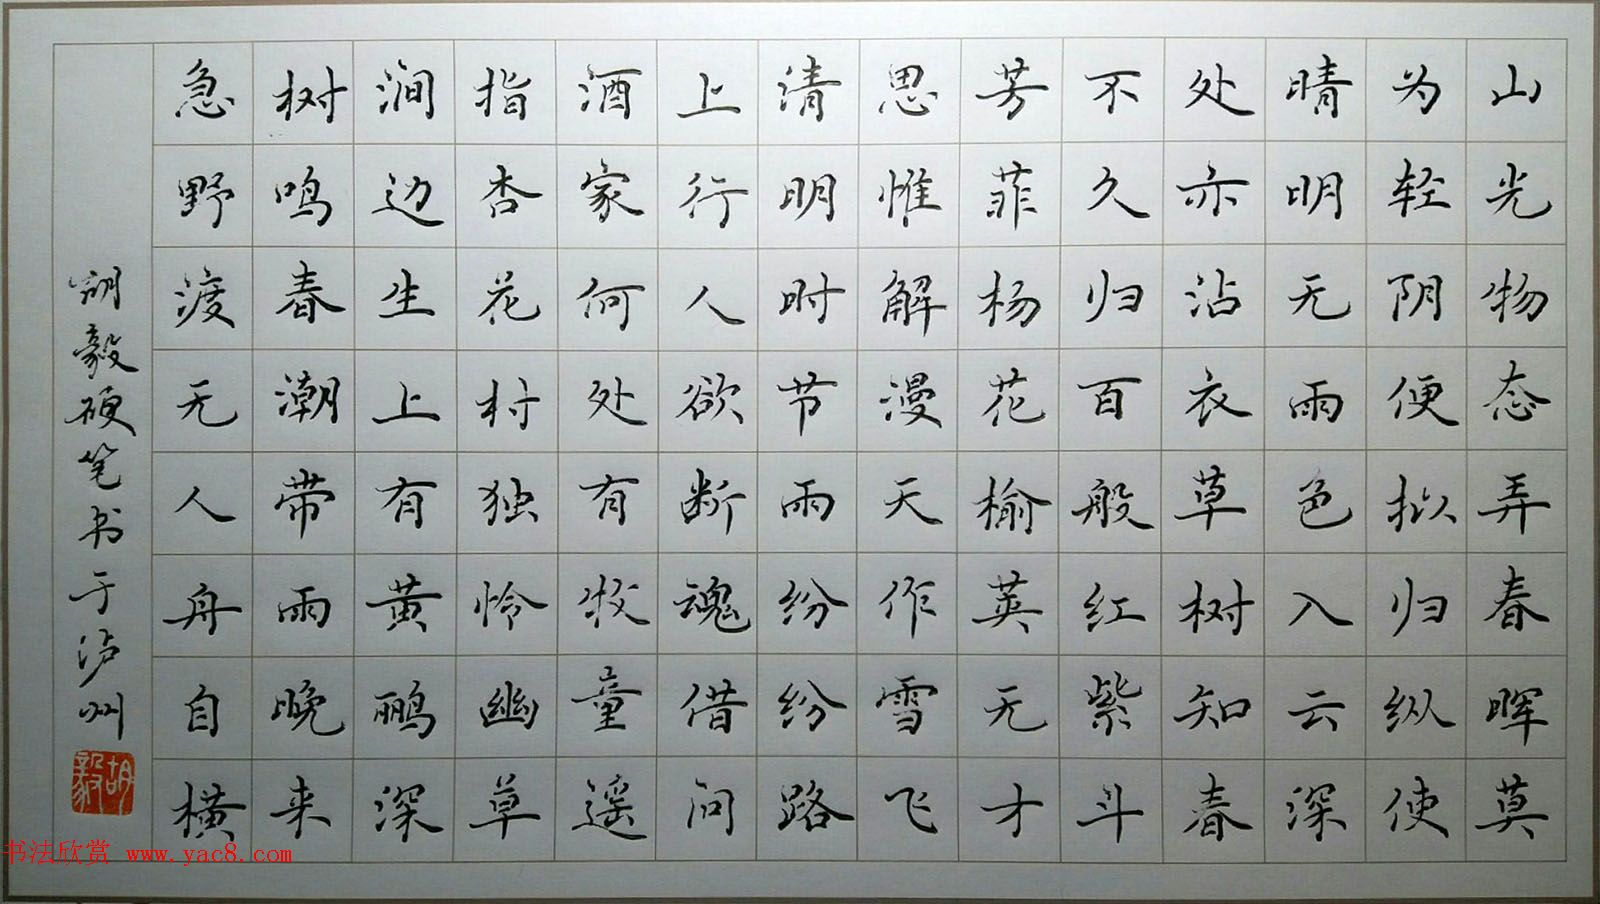 山光物态弄春晖莫
为轻阴便拟归纵使
晴明无雨色入云深
处亦沾衣草树知春
不久归百般红紫斗
芳菲杨花榆荚无才
思惟解漫天作雪飞
清明时节雨纷纷路
上行人欲断魂借问
酒家何处有牧童遥
指杏花村独怜幽草
涧边生上有黄鹂深
树鸣春潮带雨晚来
急野渡无人舟自横
胡毅硬笔书于泸州
胡毅
书法欣赏 www.yac8.com